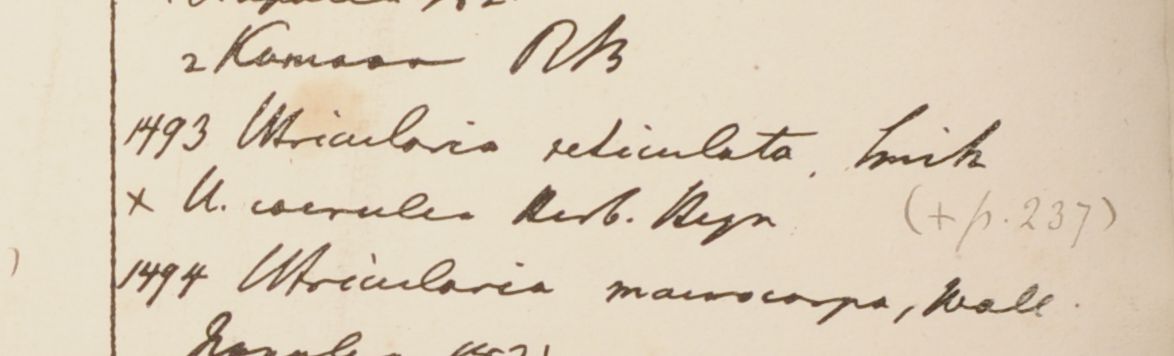 2 Kamaon RB
1493 Utricularia reticulata, Smith
× U. coerulea Herb. Heyn (+ p. 237)
1494 Utricularia macrocarpa, Wall.
Napalia 1821